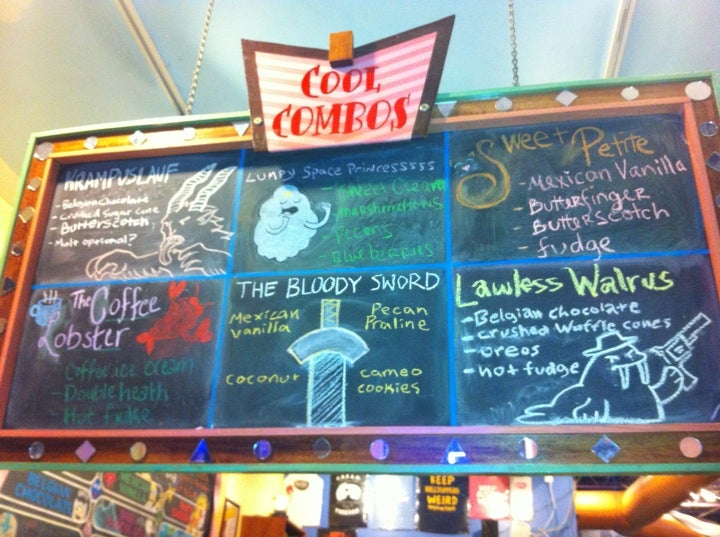 COOL
COMBOS
KRAMPUSLAUF
- Belgian Chocolate
- Crushed Sugar Cone
- Butterscotch
- Malt optional?
LUMPY SPACE PRINCESSSSS
- Sweet Cream
- marshmallows
- Pecans
- Blueberries
Sweet Petite
- Mexican Vanilla
- Butterfinger
- Butterscotch
- fudge
The Coffee
Lobster
- Coffee ice cream
- Double heath
- Hot fudge
THE BLOODY SWORD
Mexican
vanilla
Pecan
Praline
coconut
cameo
cookies
Lawless Walrus
- Belgian chocolate
- crushed Waffle cones
- oreos
- hot fudge
BELGIAN
CHOCOLATE
KEEP
WEIRD